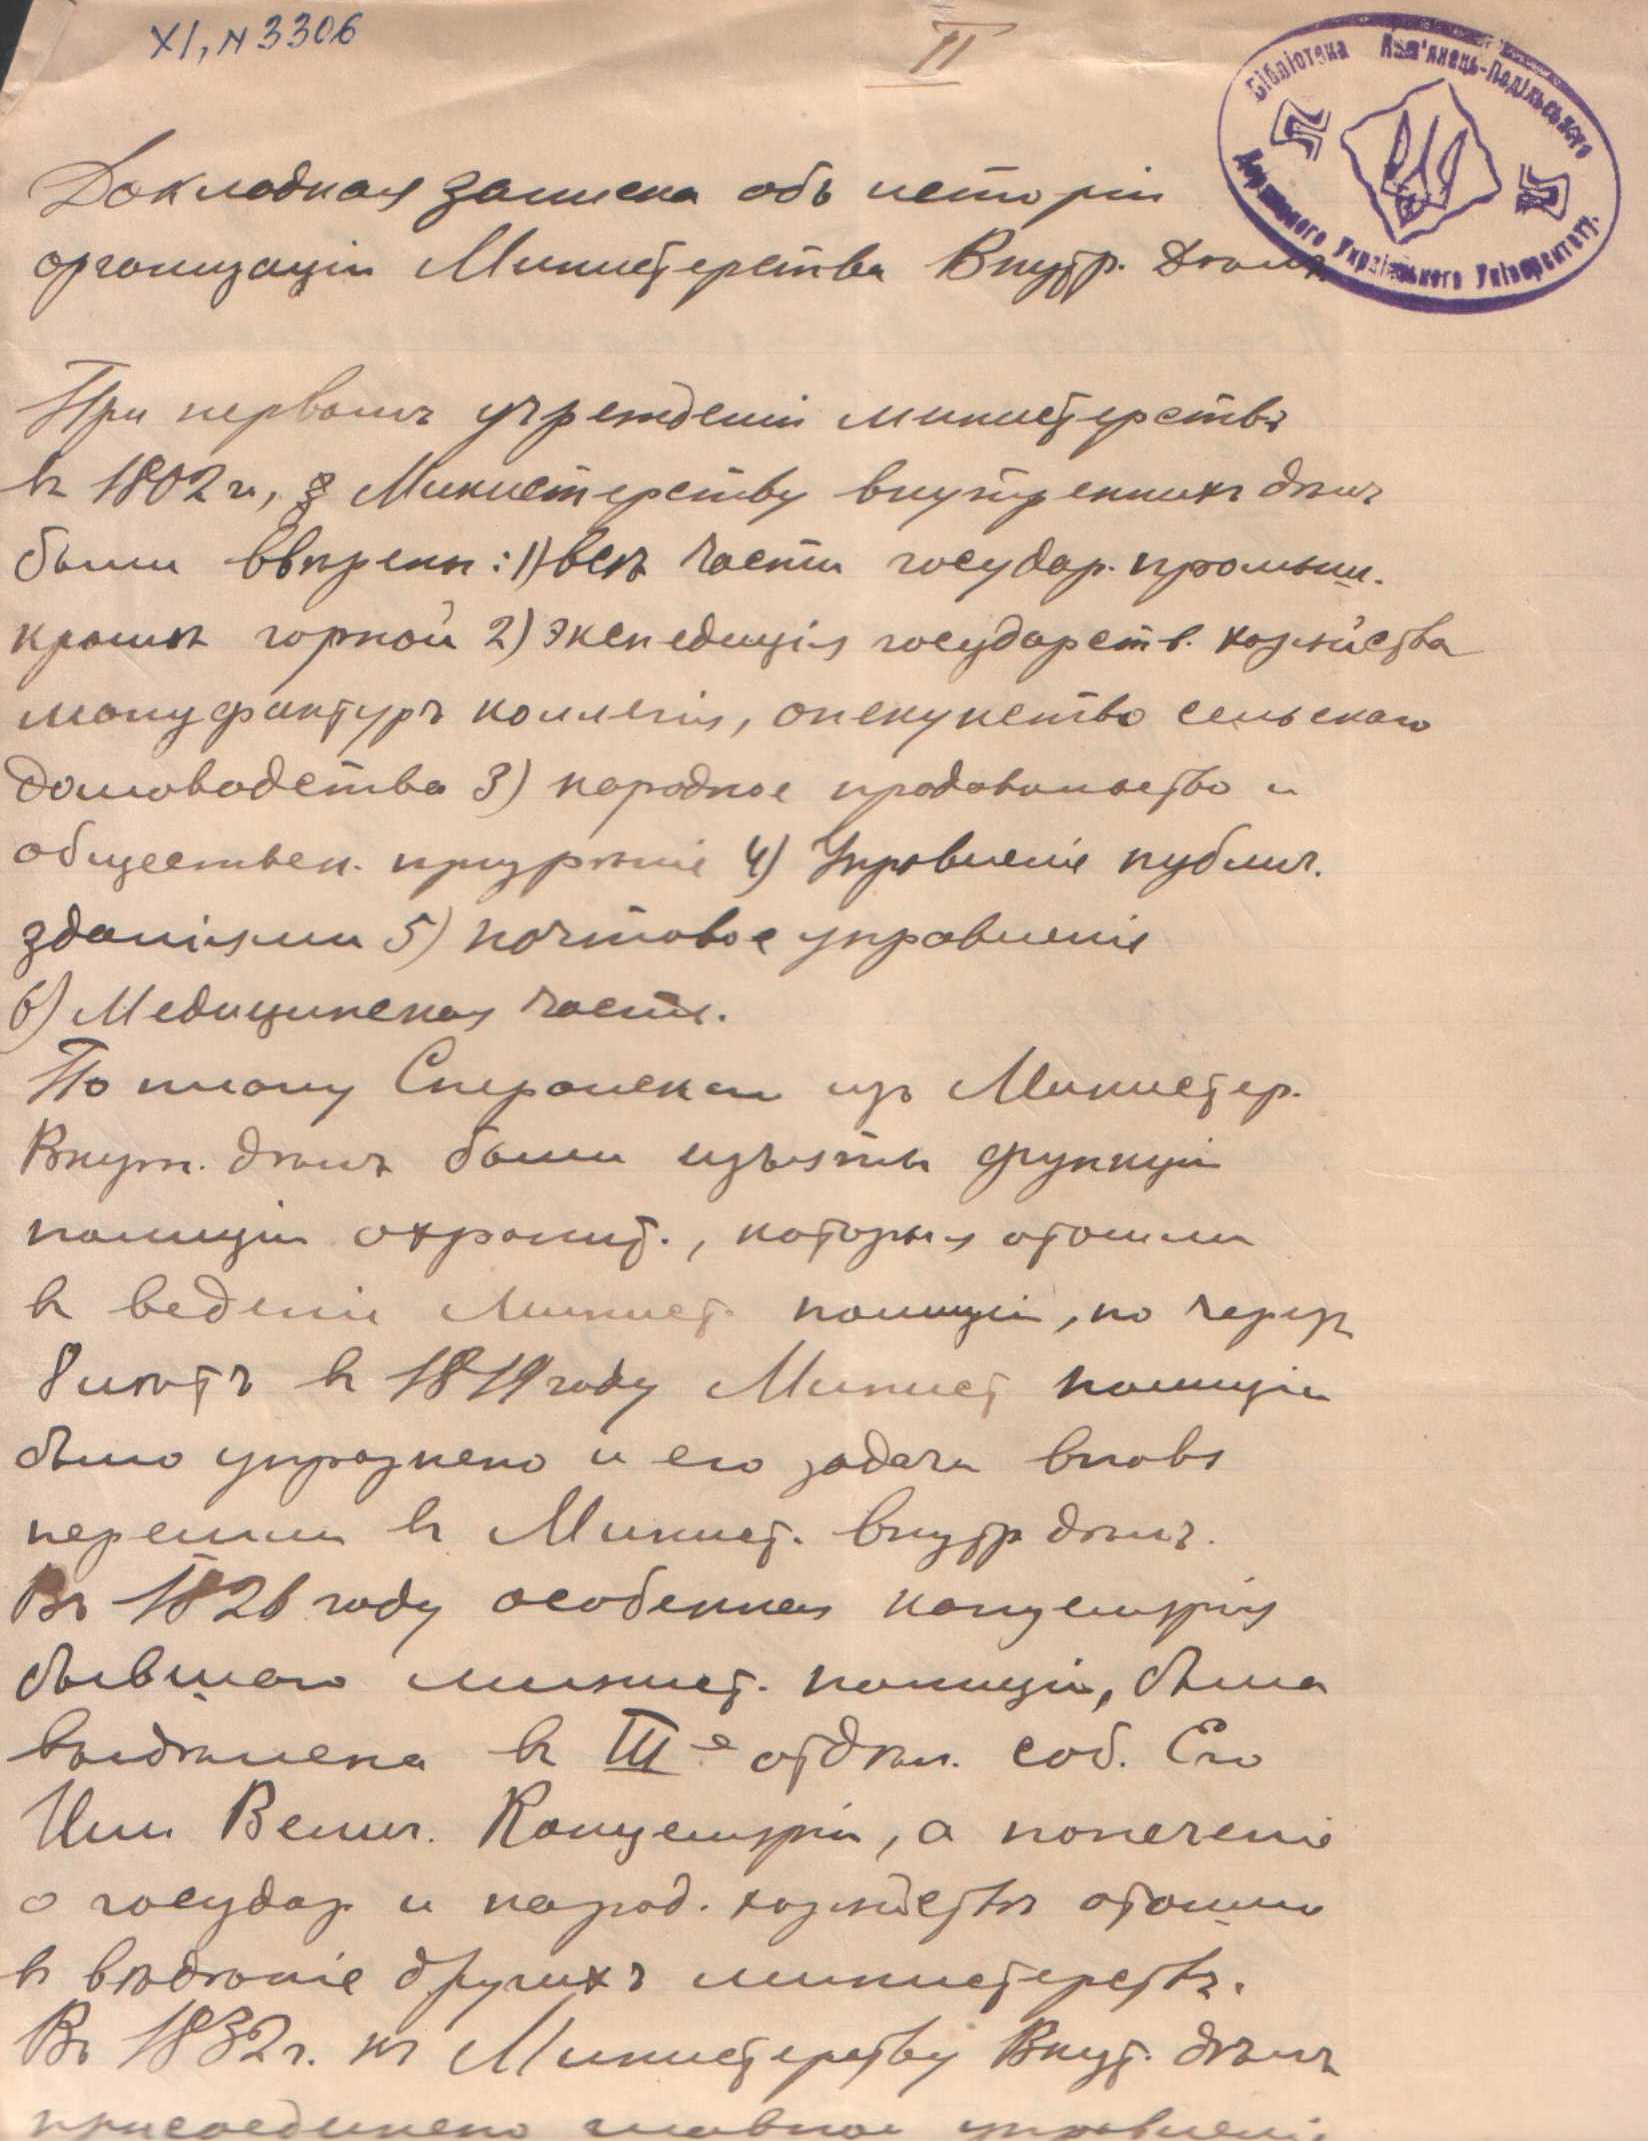 XI, N 3306
II
Бібліотека Кам'янець-Подільського
Державного Українського Університету.
Докладная записка объ исторіи
организаціи Министерства Внутр. Дѣлъ
При первомъ учрежденіи министерствъ
въ 1802 г., Министерству внутреннихъ дѣлъ
были ввѣрены: 1) всѣ части государ. промышл.
кромѣ горной 2) экспедиція государств. хозяйства
мануфактуръ коллегія, опекунство сельскаго
домоводства 3) народное продовольство и
обществен. призрѣніе 4) Управленіе публич.
зданіями 5) почтовое управленіе
6) Медицинская часть.
По плану Сперанскаго изъ Министер.
Внутр. дѣлъ были изъяты функціи
полиціи охранит., которыя отошли
въ веденіе Минист. полиціи, но черезъ
8 лѣтъ въ 1819 году Минист. полиціи
было упразнено и его задачи вновь
перешли въ Минист. внутр дѣлъ.
Въ 1826 году особенная канцелярія
бывшаго минист. полиціи, была
выдѣлена въ III-е отдѣл. соб. Его
Имп. Велич. Канцеляріи, а попеченіе
о государ. и народ. хозяйствѣ отошло
въ вѣдѣніе другихъ министерствъ.
Въ 1832 г. къ Министерству Внут. дѣлъ
присоединено главное управленіе